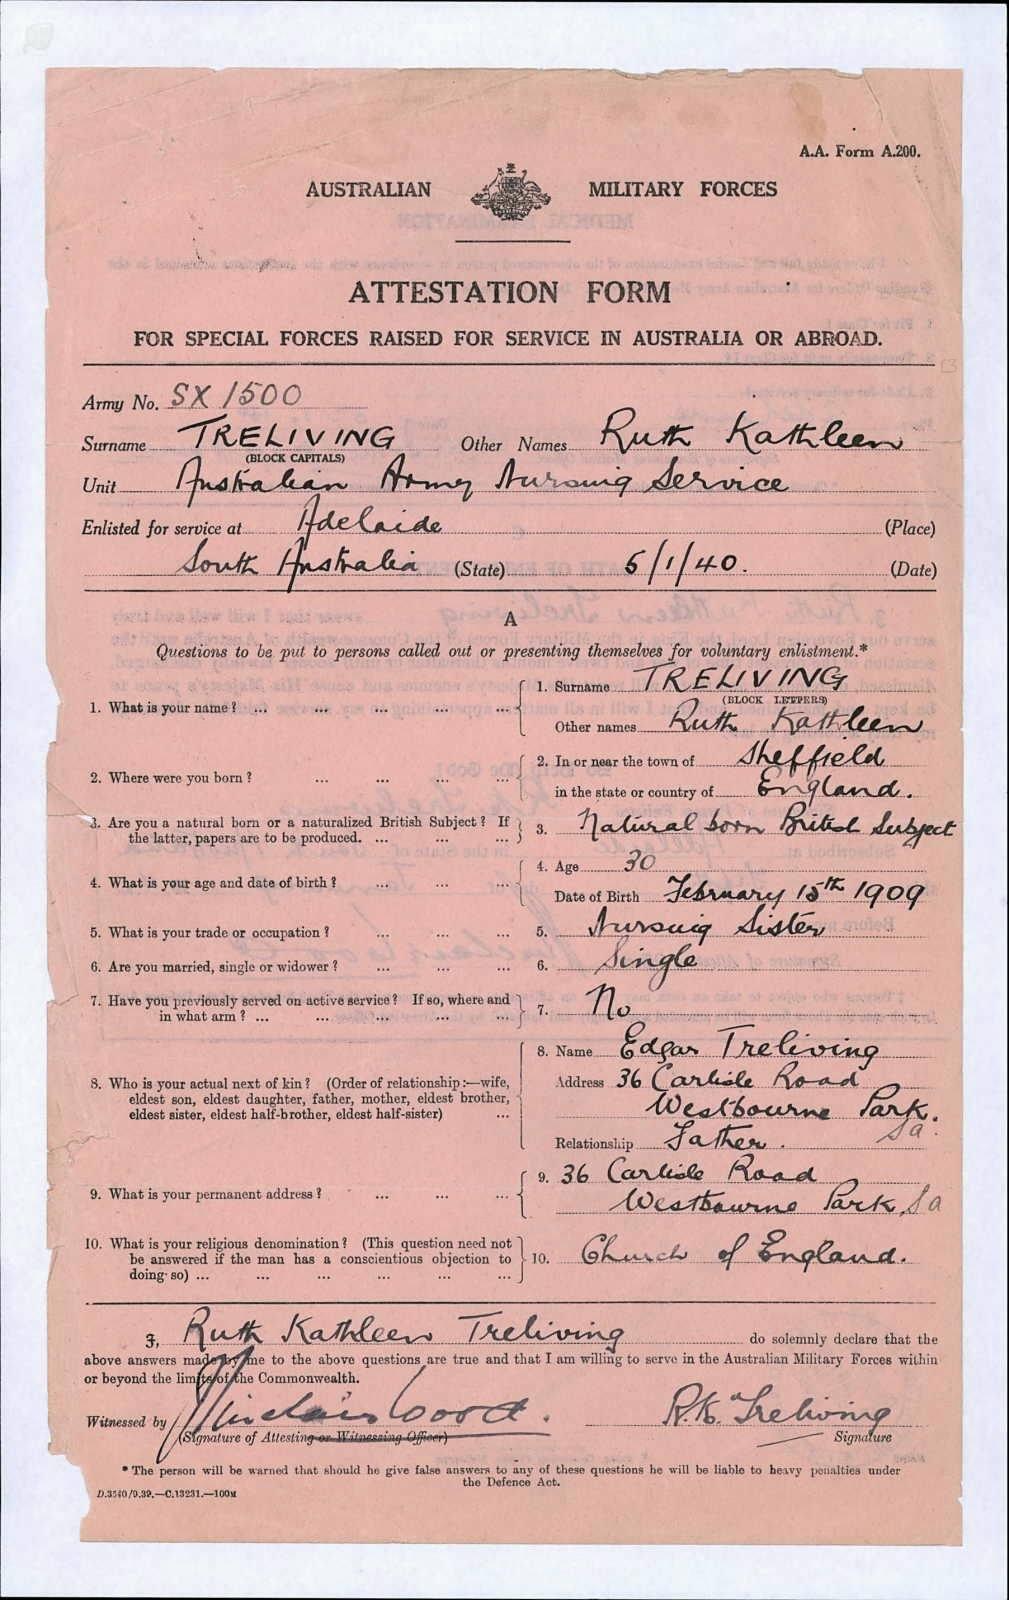 A.A. Form A.200.
AUSTRALIAN MILITARY FORCES
ATTESTATION FORM
FOR SPECIAL FORCES RAISED FOR SERVICE IN AUSTRALIA OR ABROAD.
Army No. SX 1500
Surname TRELIVING Other Names Ruth Kathleen
(BLOCK CAPITALS)
Unit Australian Army Nursing Service
Enlisted for service at Adelaide (Place)
South Australia (State) 5/1/40. (Date)
A
Questions to be put to persons called out or presenting themselves for voluntary enlistment.*
1. What is your name? ... ... ... ... ... 1. Surname TRELIVING
(BLOCK LETTERS)
Other names Ruth Kathleen
2. Where were you born? ... ... ... ... 2. In or near the town of Sheffield
in the state or country of England.
3. Are you a natural born or a naturalized British Subject? If
the latter, papers are to be produced. ... ... ... 3. Natural born British Subject
4. What is your age and date of birth? ... ... ... 4. Age 30
Date of Birth February 15th 1909
5. What is your trade or occupation? ... ... ... 5. Nursing Sister
6. Are you married, single or widower? ... ... ... 6. Single
7. Have you previously served on active service? If so, where and
in what arm? ... ... ... ... ... 7. No
8. Who is your actual next of kin? (Order of relationship:—wife,
eldest son, eldest daughter, father, mother, eldest brother,
eldest sister, eldest half-brother, eldest half-sister) ...
8. Name Edgar Treliving
Address 36 Carlisle Road
Westbourne Park.
Sa.
Relationship Father.
9. What is your permanent address? ... ... ... 9. 36 Carlisle Road
Westbourne Park, Sa
10. What is your religious denomination? (This question need not
be answered if the man has a conscientious objection to
doing so) ... ... ... ... ... ... 10. Church of England.
I, Ruth Kathleen Treliving do solemnly declare that the
above answers made by me to the above questions are true and that I am willing to serve in the Australian Military Forces within
or beyond the limits of the Commonwealth.
Witnessed by R.K. Treliving
(Signature of Attesting or Witnessing Officer) Signature
* The person will be warned that should he give false answers to any of these questions he will be liable to heavy penalties under
the Defence Act.
D.3540/9.39.—C.13231.—100M